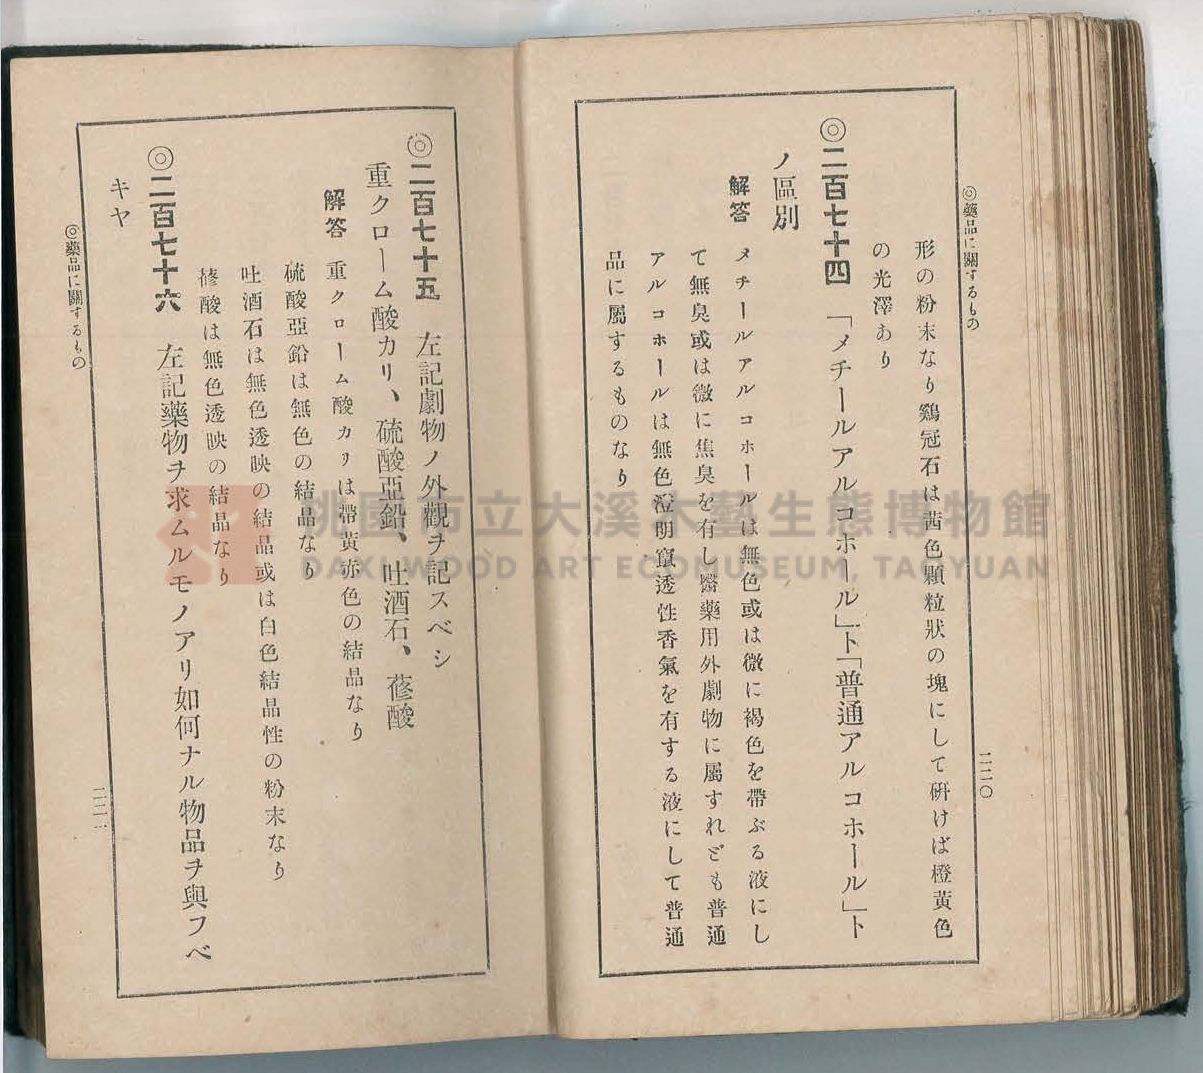 ◎藥品に關するもの
二二〇
形の粉末なり鷄冠石は茜色顆粒狀の塊にして硏けば橙黃色
の光澤あり
◎二百七十四 「メチールアルコホール」ト「普通アルコホール」ト
ノ區別
解答 メチールアルコホールは無色或は微に褐色を帶ぶる液にし
て無臭或は微に焦臭を有し醫藥用外劇物に屬すれども普通
アルコホールは無色澄明竄透性香氣を有する液にして普通
品に屬するものなり
◎二百七十五 左記劇物ノ外觀ヲ記スベシ
重クローム酸カリ、硫酸亞鉛、吐酒石、蓚酸
解答 重クローム酸カリは帶黃赤色の結晶なり
硫酸亞鉛は無色の結晶なり
吐酒石は無色透映の結晶或は白色結晶性の粉末なり
蓚酸は無色透映の結晶なり
◎二百七十六 左記藥物ヲ求ムルモノアリ如何ナル物品ヲ與フベ
キヤ
◎藥品に關するもの
二二一
桃園市立大溪木藝生態博物館
DAXI WOOD ART ECOMUSEUM, TAOYUAN